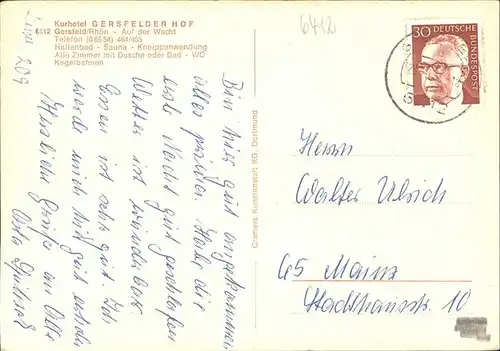 Kurhotel GERSFELDER HOF
6412 Gersfeld/Rhön - Auf der Wacht
Telefon (0 66 54) 464/465
Hallenbad - Sauna - Kneippanwendung
Alle Zimmer mit Dusche oder Bad - WC
Kegelbahnen
209
Bin hier gut angekommen
alles prima. Habe die
erste Nacht gut geschlafen
Wetter ist wunderbar.
Essen ist sehr gut. Ich
werde mich gut
Herzliche Grüße an Alle
Cramers Kunstanstalt KG, Dortmund
6412
30 DEUTSCHE BUNDESPOST
Herrn
Walter Ulrich
65 Mainz
Stadthausstr. 10